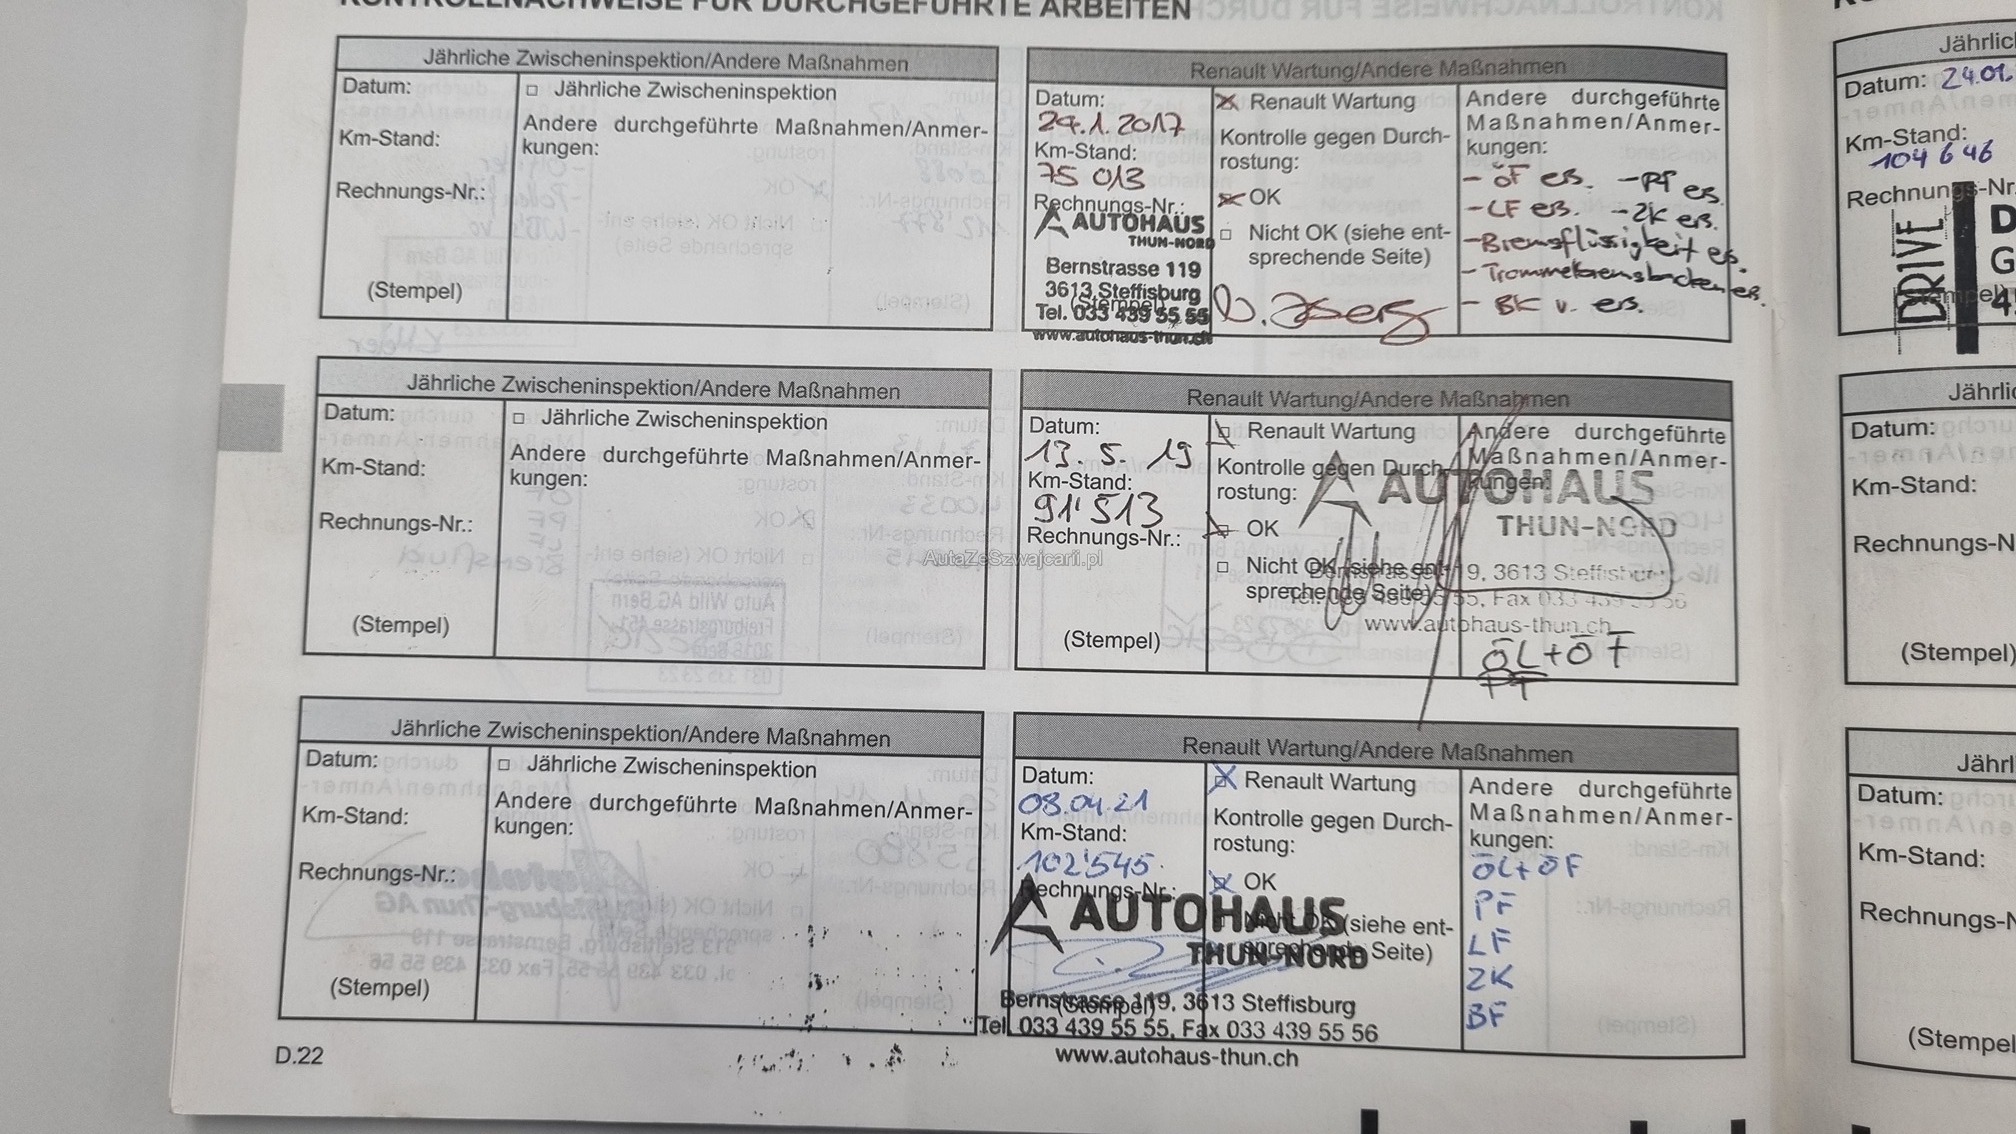 KONTROLLNACHWEISE FÜR DURCHGEFÜHRTE ARBEITEN
Jährliche Zwischeninspektion/Andere Maßnahmen
Datum:
□ Jährliche Zwischeninspektion
Km-Stand:
Andere durchgeführte Maßnahmen/Anmer-
kungen:
Rechnungs-Nr.:
(Stempel)
Renault Wartung/Andere Maßnahmen
Datum:
24.1.2017
Km-Stand:
75 013
Rechnungs-Nr.:
AUTOHAUS
THUN-NORD
Bernstrasse 119
3613 Steffisburg
(Stempel)
Tel. 033 439 55 55
www.autohaus-thun.ch
☒ Renault Wartung
Kontrolle gegen Durch-
rostung:
☒ OK
□ Nicht OK (siehe ent-
sprechende Seite)
Andere durchgeführte
Maßnahmen/Anmer-
kungen:
- ÖF ers. - PF ers.
- LF ers. - ZK ers.
- Bremsflüssigkeit ers.
- Trommelbremsbacken ers.
- BK v. ers.
Jährliche Zwischeninspektion/Andere Maßnahmen
Datum:
□ Jährliche Zwischeninspektion
Km-Stand:
Andere durchgeführte Maßnahmen/Anmer-
kungen:
Rechnungs-Nr.:
(Stempel)
Renault Wartung/Andere Maßnahmen
Datum:
13. 5. 19
Km-Stand:
91'513
Rechnungs-Nr.:
(Stempel)
☒ Renault Wartung
Kontrolle gegen Durch-
rostung:
☒ OK
□ Nicht OK (siehe ent-
sprechende Seite)
Andere durchgeführte
Maßnahmen/Anmer-
kungen:
AUTOHAUS
THUN-NORD
19, 3613 Steffisburg
55, Fax 033 439 55 56
www.autohaus-thun.ch
ÖL+ÖF
AutaZeSzwajcarii.pl
Jährliche Zwischeninspektion/Andere Maßnahmen
Datum:
□ Jährliche Zwischeninspektion
Km-Stand:
Andere durchgeführte Maßnahmen/Anmer-
kungen:
Rechnungs-Nr.:
(Stempel)
Renault Wartung/Andere Maßnahmen
Datum:
08.04.21
Km-Stand:
102'545
Rechnungs-Nr.:
☒ Renault Wartung
Kontrolle gegen Durch-
rostung:
☒ OK
Nicht OK (siehe ent-
sprechende Seite)
Andere durchgeführte
Maßnahmen/Anmer-
kungen:
ÖL+ÖF
PF
LF
ZK
BF
AUTOHAUS
THUN-NORD
(Stempel)
Bernstrasse 119, 3613 Steffisburg
Tel. 033 439 55 55, Fax 033 439 55 56
www.autohaus-thun.ch
D.22
Jährlic
Datum: 24.01.
Km-Stand:
104 646
Rechnungs-Nr.
DRIVE
Jährlic
Datum:
Km-Stand:
Rechnungs-N
(Stempel)
Jährl
Datum:
Km-Stand:
Rechnungs-N
(Stempel